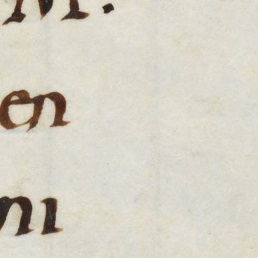 M.
en
ni